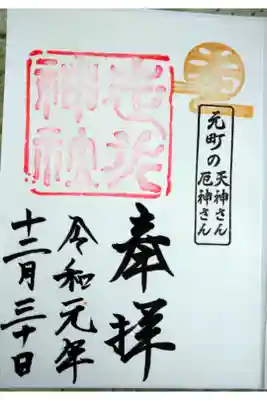 走水
神社
元町の
天神さん
厄神さん
奉拝
令和元年
十二月三十日